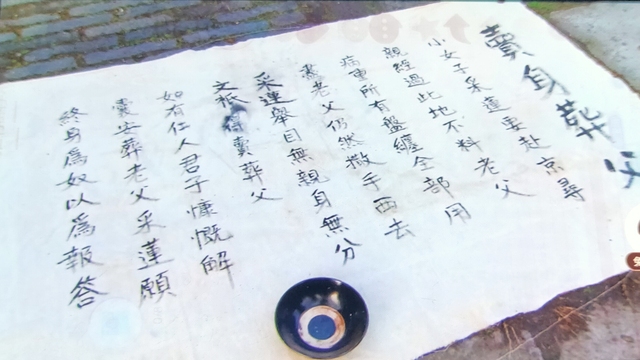 賣身葬父
小女子采蓮要赴京尋
親經過此地不料老父
病重所有盤纏全部用
盡老父仍然撒手西去
采蓮舉目無親身無分
文祇得賣葬父
如有仁人君子慷慨解
囊安葬老父采蓮願
終身為奴以為報答